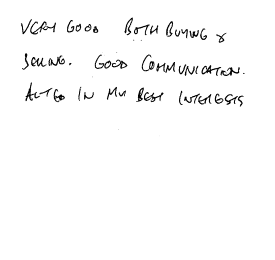 VERY GOOD BOTH BUYING &
SELLING. GOOD COMMUNICATION.
ACTED IN MY BEST INTERESTS